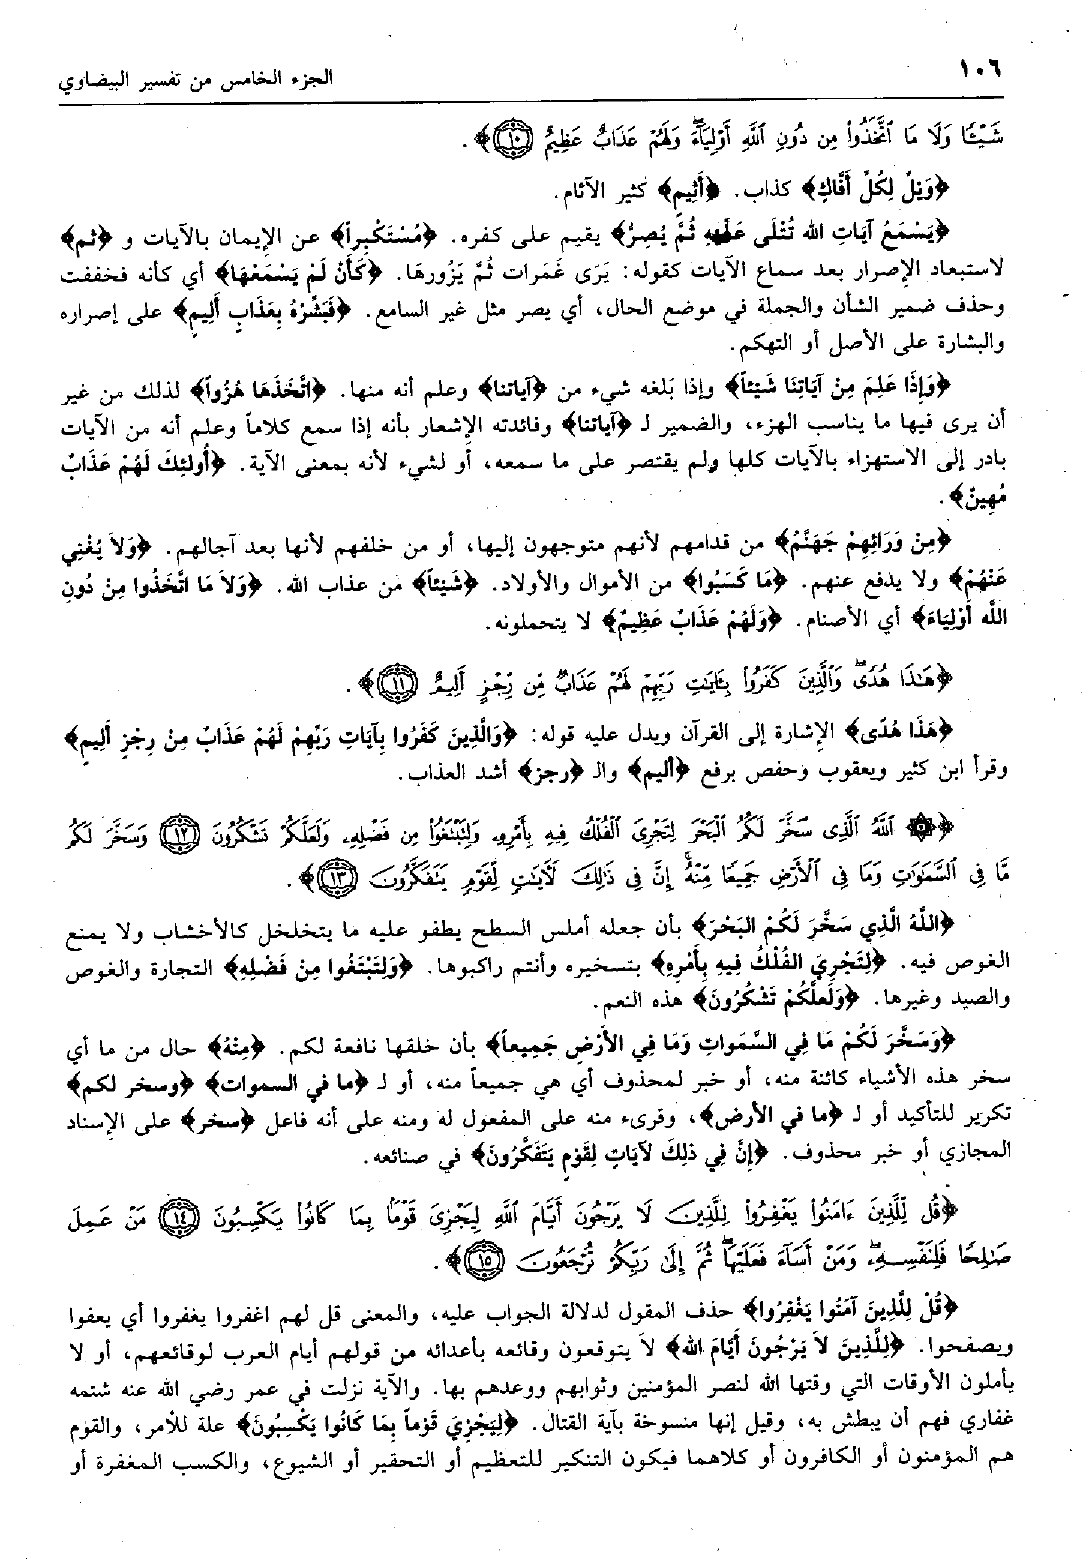 ١٠٦
الجزء الخامس من تفسير البيضاوي
شَيْـًٔا وَلَا مَا ٱتَّخَذُوا۟ مِن دُونِ ٱللَّهِ أَوْلِيَآءَ ۖ وَلَهُمْ عَذَابٌ عَظِيمٌ ﴿١٠﴾﴾.
﴿وَيْلٌ لِكُلِّ أَفَّاكٍ﴾ كذاب. ﴿أَثِيمٍ﴾ كثير الآثام.
﴿يَسْمَعُ آيَاتِ الله تُتْلَى عَلَيْهِ ثُمَّ يُصِرُّ﴾ يقيم على كفره. ﴿مُسْتَكْبِراً﴾ عن الإيمان بالآيات و ﴿ثم﴾
لاستبعاد الإصرار بعد سماع الآيات كقوله: يَرَى غَمَرات ثُمَّ يَزُورهَا. ﴿كَأَنْ لَمْ يَسْمَعْهَا﴾ أي كأنه فخففت
وحذف ضمير الشأن والجملة في موضع الحال، أي يصر مثل غير السامع. ﴿فَبَشِّرْهُ بِعَذَابٍ أَلِيمٍ﴾ على إصراره
والبشارة على الأصل أو التهكم.
﴿وَإِذَا عَلِمَ مِنْ آيَاتِنَا شَيْئاً﴾ وإذا بلغه شيء من ﴿آياتنا﴾ وعلم أنه منها. ﴿اتَّخَذَهَا هُزُواً﴾ لذلك من غير
أن يرى فيها ما يناسب الهزء، والضمير لـ ﴿آياتنا﴾ وفائدته الإشعار بأنه إذا سمع كلاماً وعلم أنه من الآيات
بادر إلى الاستهزاء بالآيات كلها ولم يقتصر على ما سمعه، أو لشيء لأنه بمعنى الآية. ﴿أُولَئِكَ لَهُمْ عَذَابٌ
مُهِينٌ﴾.
﴿مِنْ وَرَائِهِمْ جَهَنَّمُ﴾ من قدامهم لأنهم متوجهون إليها، أو من خلفهم لأنها بعد آجالهم. ﴿وَلاَ يُغْنِي
عَنْهُمْ﴾ ولا يدفع عنهم. ﴿مَا كَسَبُوا﴾ من الأموال والأولاد. ﴿شَيْئاً﴾ من عذاب الله. ﴿وَلاَ مَا اتَّخَذُوا مِنْ دُونِ
اللَّه أَوْلِيَاءَ﴾ أي الأصنام. ﴿وَلَهُمْ عَذَابٌ عَظِيمٌ﴾ لا يتحملونه.
﴿هَـٰذَا هُدًى ۖ وَٱلَّذِينَ كَفَرُوا۟ بِـَٔايَـٰتِ رَبِّهِمْ لَهُمْ عَذَابٌ مِّن رِّجْزٍ أَلِيمٌ ﴿١١﴾﴾.
﴿هَذَا هُدًى﴾ الإشارة إلى القرآن ويدل عليه قوله: ﴿وَالَّذِينَ كَفَرُوا بِآيَاتِ رَبِّهِمْ لَهُمْ عَذَابٌ مِنْ رِجْزٍ أَلِيمٍ﴾
وقرأ ابن كثير ويعقوب وحفص برفع ﴿أليم﴾ والـ ﴿رجز﴾ أشد العذاب.
﴿۞ ٱللَّهُ ٱلَّذِى سَخَّرَ لَكُمُ ٱلْبَحْرَ لِتَجْرِىَ ٱلْفُلْكُ فِيهِ بِأَمْرِهِۦ وَلِتَبْتَغُوا۟ مِن فَضْلِهِۦ وَلَعَلَّكُمْ تَشْكُرُونَ ﴿١٢﴾ وَسَخَّرَ لَكُم
مَّا فِى ٱلسَّمَـٰوَٰتِ وَمَا فِى ٱلْأَرْضِ جَمِيعًا مِّنْهُ ۚ إِنَّ فِى ذَٰلِكَ لَـَٔايَـٰتٍ لِّقَوْمٍ يَتَفَكَّرُونَ ﴿١٣﴾﴾.
﴿اللَّهُ الَّذِي سَخَّرَ لَكُمْ البَحْرَ﴾ بأن جعله أملس السطح يطفو عليه ما يتخلخل كالأخشاب ولا يمنع
الغوص فيه. ﴿لِتَجْرِيَ الفُلْكُ فِيهِ بِأَمْرِهِ﴾ بتسخيره وأنتم راكبوها. ﴿وَلِتَبْتَغُوا مِنْ فَضْلِهِ﴾ التجارة والغوص
والصيد وغيرها. ﴿وَلَعلَّكُمْ تَشْكُرُونَ﴾ هذه النعم.
﴿وَسَخَّرَ لَكُمْ مَا فِي السَّمَواتِ وَمَا فِي الأَرْضِ جَمِيعاً﴾ بأن خلقها نافعة لكم. ﴿مِنْهُ﴾ حال من ما أي
سخر هذه الأشياء كائنة منه، أو خبر لمحذوف أي هي جميعاً منه، أو لـ ﴿ما في السموات﴾ ﴿وسخر لكم﴾
تكرير للتأكيد أو لـ ﴿ما في الأرض﴾، وقرىء منه على المفعول له ومنه على أنه فاعل ﴿سخر﴾ على الإسناد
المجازي أو خبر محذوف. ﴿إِنَّ فِي ذَلِكَ لآيَاتٍ لِقَوْمٍ يَتَفَكَّرُونَ﴾ في صنائعه.
﴿قُل لِّلَّذِينَ ءَامَنُوا۟ يَغْفِرُوا۟ لِلَّذِينَ لَا يَرْجُونَ أَيَّامَ ٱللَّهِ لِيَجْزِىَ قَوْمًۢا بِمَا كَانُوا۟ يَكْسِبُونَ ﴿١٤﴾ مَنْ عَمِلَ
صَـٰلِحًا فَلِنَفْسِهِۦ ۖ وَمَنْ أَسَآءَ فَعَلَيْهَا ۖ ثُمَّ إِلَىٰ رَبِّكُمْ تُرْجَعُونَ ﴿١٥﴾﴾.
﴿قُلْ لِلَّذِينَ آمَنُوا يَغْفِرُوا﴾ حذف المقول لدلالة الجواب عليه، والمعنى قل لهم اغفروا يغفروا أي يعفوا
ويصفحوا. ﴿لِلَّذِينَ لاَ يَرْجُونَ أَيَّامَ الله﴾ لا يتوقعون وقائعه بأعدائه من قولهم أيام العرب لوقائعهم، أو لا
يأملون الأوقات التي وقتها الله لنصر المؤمنين وثوابهم ووعدهم بها. والآية نزلت في عمر رضي الله عنه شتمه
غفاري فهم أن يبطش به، وقيل إنها منسوخة بآية القتال. ﴿لِيَجْزِيَ قَوْماً بِمَا كَانُوا يَكْسِبُونَ﴾ علة للأمر، والقوم
هم المؤمنون أو الكافرون أو كلاهما فيكون التنكير للتعظيم أو التحقير أو الشيوع، والكسب المغفرة أو